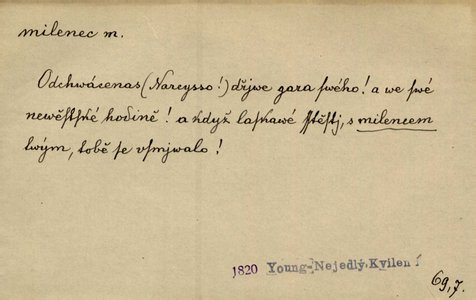 milenec m.
Odchwácenas (Narcysso!) dřjwe gara swého! a we swé
newěstské hodině! a když laskawé sstěstj, s milencem
twým, tobě se vsmjwalo!
1820 Young-Nejedlý, Kvílení
69,7.